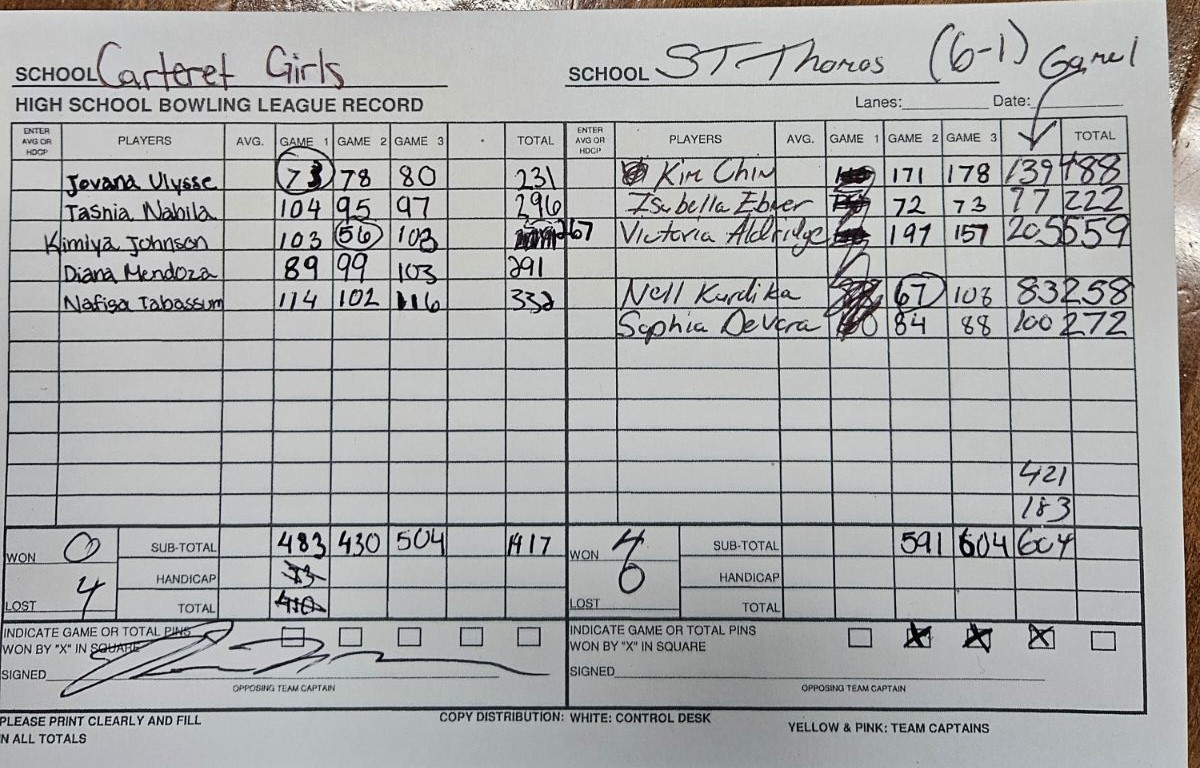 SCHOOL Carteret Girls SCHOOL ST-Thomas (6-1) Game 1
HIGH SCHOOL BOWLING LEAGUE RECORD Lanes: Date:
ENTER AVG OR HDCP PLAYERS AVG. GAME 1 GAME 2 GAME 3 TOTAL ENTER AVG OR HDCP PLAYERS AVG. GAME 1 GAME 2 GAME 3 TOTAL
Jovana Ulysse 73 78 80 231 Kim Chin 171 178 139 488
Tasnia Nabila 104 95 97 296 Isabella Ebner 72 73 77 222
Kimiya Johnson 103 56 103 267 Victoria Aldridge 197 157 205 559
Diana Mendoza 89 99 103 291
Nafisa Tabassum 114 102 116 332 Nell Kurdika 67 108 83 258
Sophia DeVera 84 88 100 272
421
183
WON 0 SUB-TOTAL 483 430 504 1417 WON 4 SUB-TOTAL 591 604 604
HANDICAP 73 0 HANDICAP
LOST 4 TOTAL 410 LOST TOTAL
INDICATE GAME OR TOTAL PINS INDICATE GAME OR TOTAL PINS
WON BY "X" IN SQUARE WON BY "X" IN SQUARE X X X
SIGNED SIGNED
OPPOSING TEAM CAPTAIN OPPOSING TEAM CAPTAIN
PLEASE PRINT CLEARLY AND FILL COPY DISTRIBUTION: WHITE: CONTROL DESK YELLOW & PINK: TEAM CAPTAINS
N ALL TOTALS